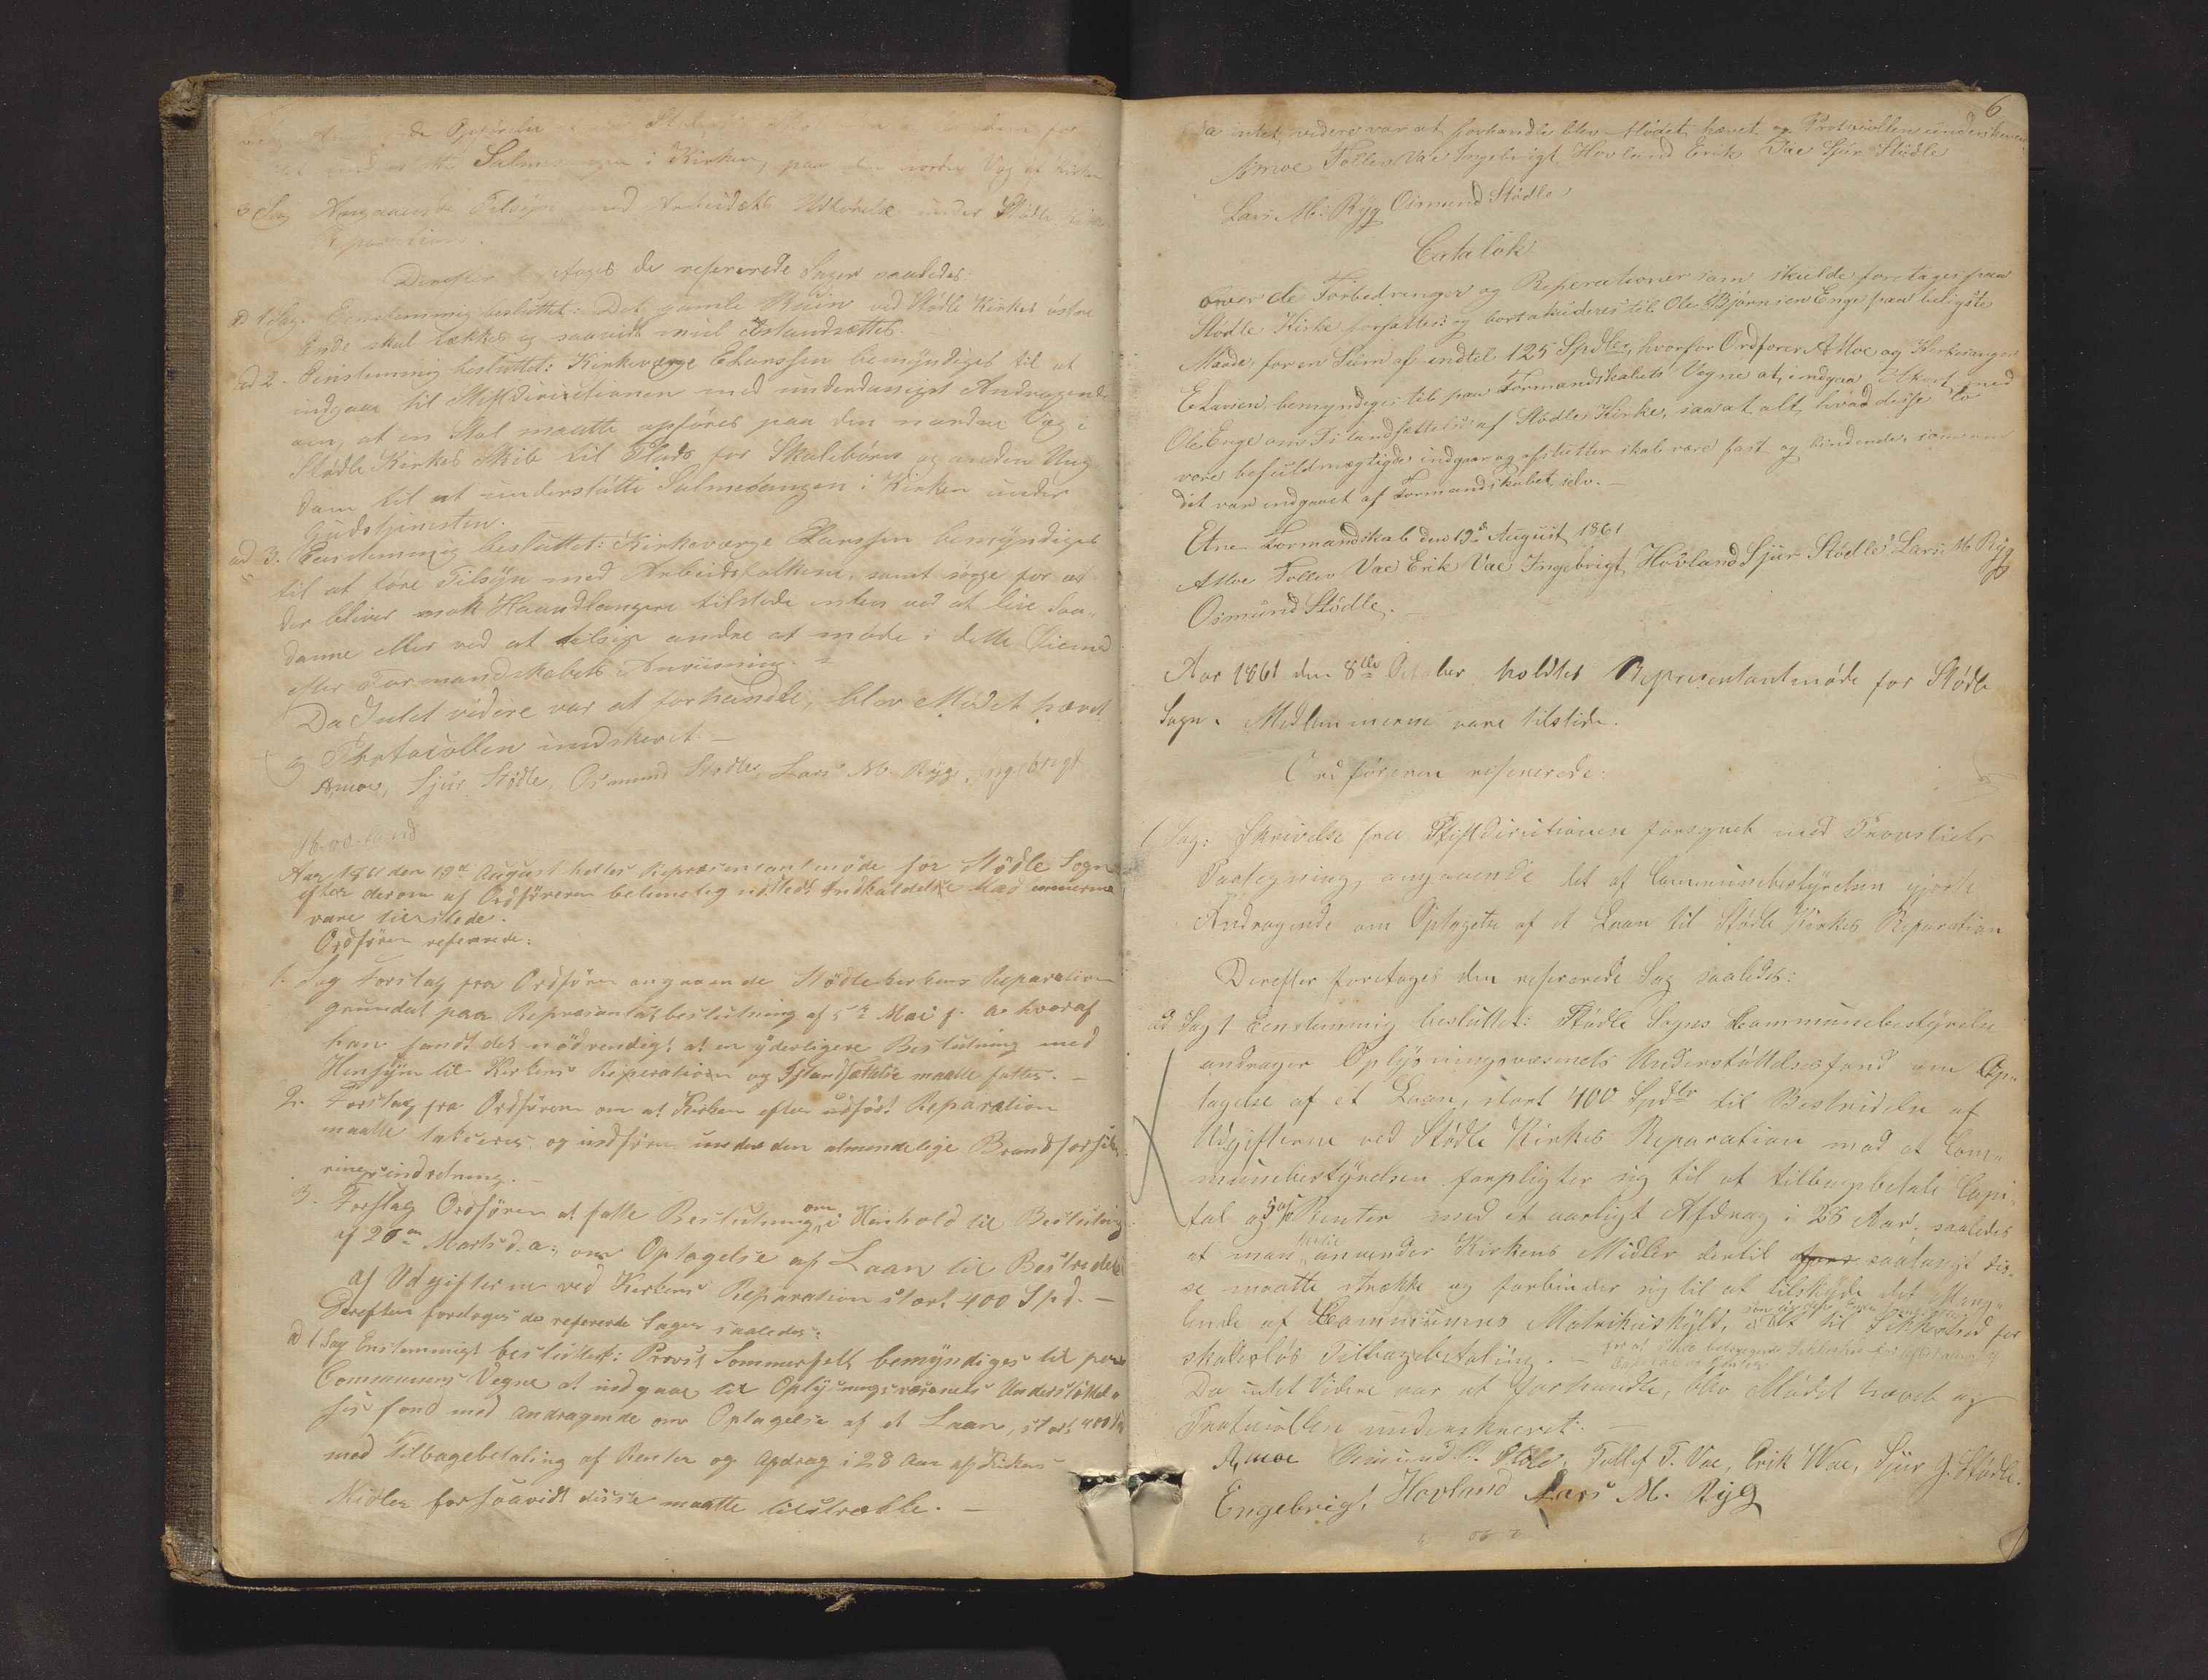 Opførelse
Salmesangen i Kirken, paa den nordre Væg af Kirken
3 Sag Angaaende Tilsyn med Arbeidets Udførelse under Stødle Kirkes
Reparation.
Derefter foretages de refererede Sager saaledes:
ad 1 Sag. Eenstemmig besluttet: Det gamle Ruin ved Stødle Kirkes østre
Ende skal tækkes og saavidt muligt istandsættes.
ad 2. Eenstemmig besluttet: Kirkeværge E Larssen bemyndiges til at
indgaae til Stiftdirectionen med underdanigst Andragende
om, at en Stol maatte opføres paa den nordre Væg i
Stødle Kirkes Skib til Plads for Skolebørn og anden Ung-
dom til at understøtte Salmesangen i Kirken under
Gudstjenesten.
ad 3. Eenstemmig besluttet: Kirkeværge E Larssen bemyndiges
til at føre Tilsyn med Arbeidsfolkene, samt sørge for at
der bliver nok Haandlangere tilstede enten ved at leie saa-
danne eller ved at tilsige andre at møde i dette Øiemed
efter Formandskabets Anviisning.
Da Intet videre var at forhandle, blev Mødet hævet
og Protocollen underskrevet. —
A, moe, Sjur Stødle, Osmund Stødle, Lars M. Ryg, Ingebrigt
Hovland
Aar 1861 den 19de August holtes Repræsentantmøde for Stødle Sogn
efter derom af Ordføreren betimelig udstedt Indkaldelse Medlemmerne
vare tilstede.
Ordføren refererede:
1. Sag Forslag fra Ordføren angaaende Stødle Kirkens Reparation
grundet paa Repræsentantbeslutning af 5te Mai f. a. hvoraf
han fandt det nødvendigt at en yderligere Beslutning med
Hensyn til Kirkens Reperation og Istandsættelse maatte fattes. —
2. Forslag fra Ordføreren om at Kirken efter udført Reparation
maatte takseres og indføres under den almindelige Brandforsik-
ringsindretning. —
3. Forslag Ordføren at fatte Beslutning om i Henhold til Beslutning
af 26de Marts d. a., om Optagelse af Laan til Bestridelse
af Udgifterne ved Kirkens Reparation stort 400 Spd. —
Derefter foretages de refererede Sager saaledes:
ad 1 Sag Enstemmigt besluttet: Provst Sommerfelt bemyndiges til paa
Communens Vegne at indgaae til Oplysningsvæsenets Understøttel-
ses fond med andragende om Optagelse af et Laan, stort 400 Spd
med Tilbagebetaling af Renter og Afdrag i 28 Aar af Kirkens
Midler forsaavidt disse maatte tilstrække. —
6
Da intet videre var at forhandle blev Mødet hævet og Protocollen underskreven
A, moe Tollev Vae Ingebrigt Hovland Erik Vae Sjur Stødle
Lars M. Ryg Osmund Stødle
Catalok
over de Forbedringer og Reperationer som skulde foretages paa
Stødle Kirke forfattes og bortakorderes til Ole Bjørnsen Enge paa beligste
Maade for en Sum af indtil 125 Spdlr, hvorfor Ordfører A Moe og Kirkeværger
E Larsen bemyndiges til paa Formandskabets Vegne at indgaae Akort med
Ole Enge om Istandsættelse af Stødle Kirke, saa at alt, hvad disse to
vore befuldmægtigde indgaar og afslutter skal være fast og bindende, som om
det var indgaaet af Formandskabet selv. —
Etne Formandskab den 19de August 1861
A Moe Tollev Vae Erik Vae Ingebrigt Hovland Sjur Stødle Lars M Ryg
Osmund Stødle. —
Aar 1861 den 8de October holdtes Representantmøde for Stødle
Sogn. Medlemmerne vare tilstede.
Ordføreren refererede:
1 Sag: Skrivelse fra Stiftdirectionen forsynet med Provstiets
Paategning, angaaende det af Communebestyrelsen gjorte
Andragende om Optagelse af et Laan til Stødle Kirkes Reparation
Derefter foretages den refererede Sag saaledes:
ad Sag 1 Eenstemmig besluttet: Stødle Sogns Communebestyrelse
andrager Oplysningsvæsenets Understøttelsesfond om Op-
tagelse af et Laan, stort 400 Spdlr til Bestridelse af
Udgifterne ved Stødle Kirkes Reparation mod at Com-
munebestyrelsen forpligter sig til at tilbagebetale Capi-
tal og 5 % Renter med et aarligt Afdrag i 28 Aar, saaledes
at man anvender Kirkens Midler dertil saalangt dis-
se maatte strække og forbinder sig til at tilskyde det Mang-
lende af Communens Matrikulskyld, alt til Sikkerhed for
skadesløs Tilbagebetaling. —
Da intet Videre var at forhandle, blev Mødet hævet og
Protocollen underskrevet: —
A, moe Osmund Stødle, Tollef T. Vae, Erik Wae, Sjur J. Stødle.
Engebrigt Hovland Lars M. Ryg